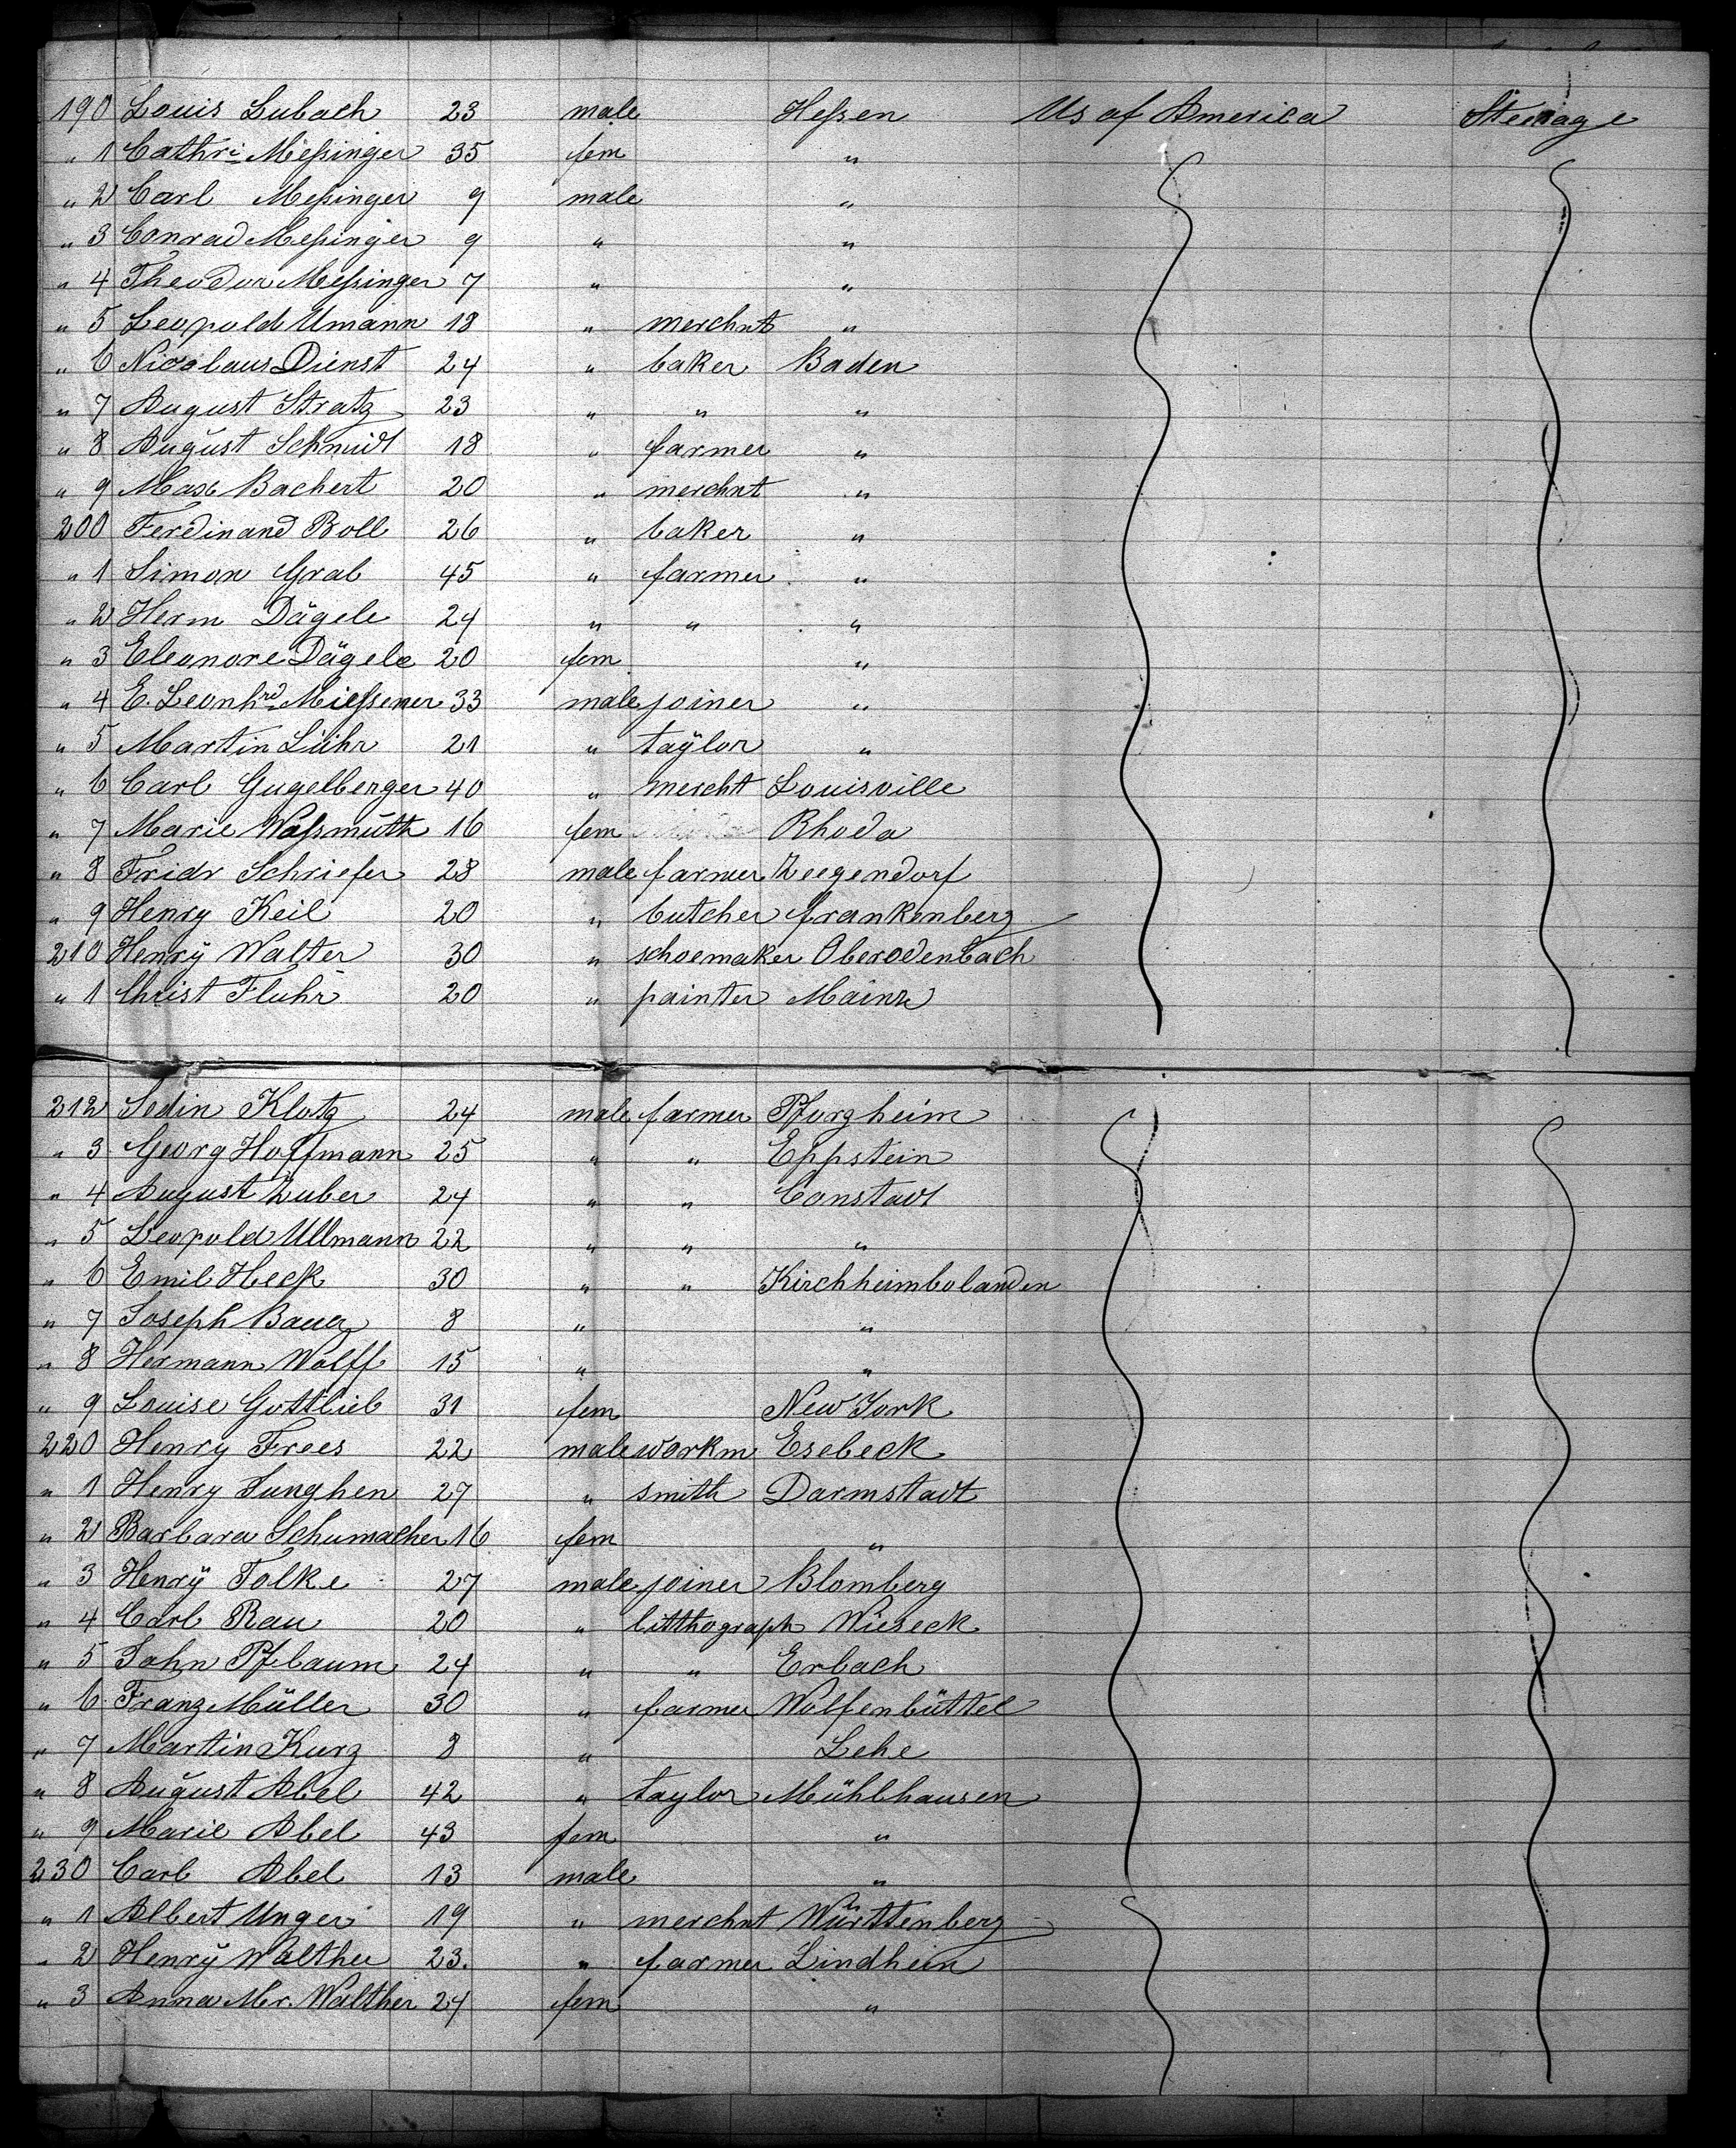 190 Louis Lubach 23 male Heſsen Us of America Steerage
" 1 Cathri Meſsinger 35 fem "
" 2 Carl Meſsinger 9 male "
" 3 Conrad Meſsinger 9 " "
" 4 Theodor Meſsinger 7 " "
" 5 Leopold Umann 18 " merchnt "
" 6 Nicolaus Dienst 24 " baker Baden
" 7 August Stratz 23 " " "
" 8 August Schmidt 18 " farmer "
" 9 Max Bachert 20 " merchnt "
200 Ferdinand Boll 26 " baker "
" 1 Simon Grab 45 " farmer "
" 2 Herm Dägele 24 " " "
" 3 Eleonore Dägele 20 fem "
" 4 E. Leonhrd Mieſsener 33 male joiner "
" 5 Martin Lühr 21 " taylor "
" 6 Carl Gugelberger 40 " mercht Louisville
" 7 Marie Waſsmuth 16 fem Rhoda
" 8 Fridr Schriefer 28 male farmer Zeegendorf
" 9 Henry Keil 20 " butcher frankenberg
210 Henry Walter 30 " schoemaker Oberodenbach
" 1 Christ Fluhr 20 " painter Mainz
212 Sedin Klotz 24 male farmer Pforzheim
" 3 Georg Hoffmann 25 " " Eppstein
" 4 August Zuber 24 " " Canstadt
" 5 Leopold Ullmann 22 " " "
" 6 Emil Heck 30 " " Kirchheimbolanden
" 7 Joseph Bauer 8 " "
" 8 Hermann Wolff 15 " "
" 9 Louise Gottlieb 31 fem New York
220 Henry Frees 22 male workm Esebeck
" 1 Henry Junghen 27 " smith Darmstadt
" 2 Barbara Schumacher 16 fem "
" 3 Henry Folke 27 male joiner Blomberg
" 4 Carl Rau 20 " litthograph Wieseck
" 5 John Pflaum 24 " " Erbach
" 6 Franz Müller 30 " farmer Wolfenbüttel
" 7 Martin Kurz 8 " Lehe
" 8 August Abel 42 " taylor Mühlhausen
" 9 Marie Abel 43 fem "
230 Carl Abel 13 male "
" 1 Albert Unger 19 " merchnt Württenberg
" 2 Henry Walther 23. " farmer Lindheim
" 3 Anna Mr. Walther 24 fem "